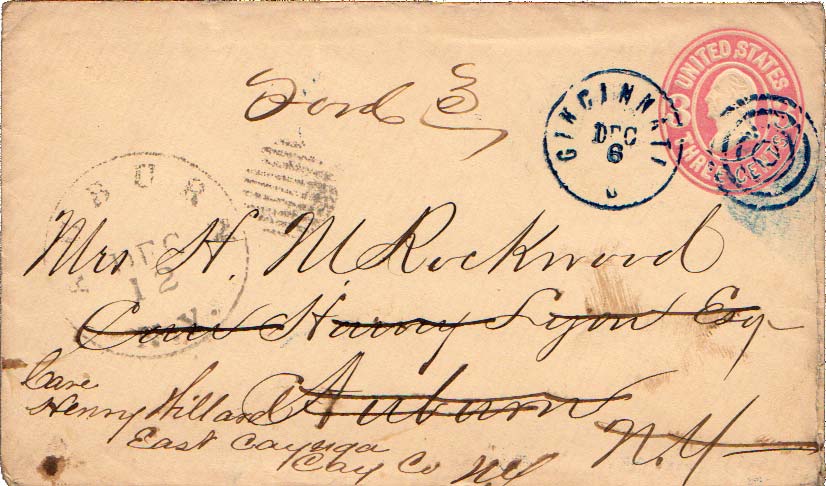 UNITED STATES
3
THREE CENTS
CINCINNATI
DEC
6
Ford 3
AUBURN
DEC
12
N.Y.
Mrs H. M Rockwood
Care Harvey Lyon Esq
Auburn
N.Y
Care
Henry Willard
East Cayuga
Cay. Co NY